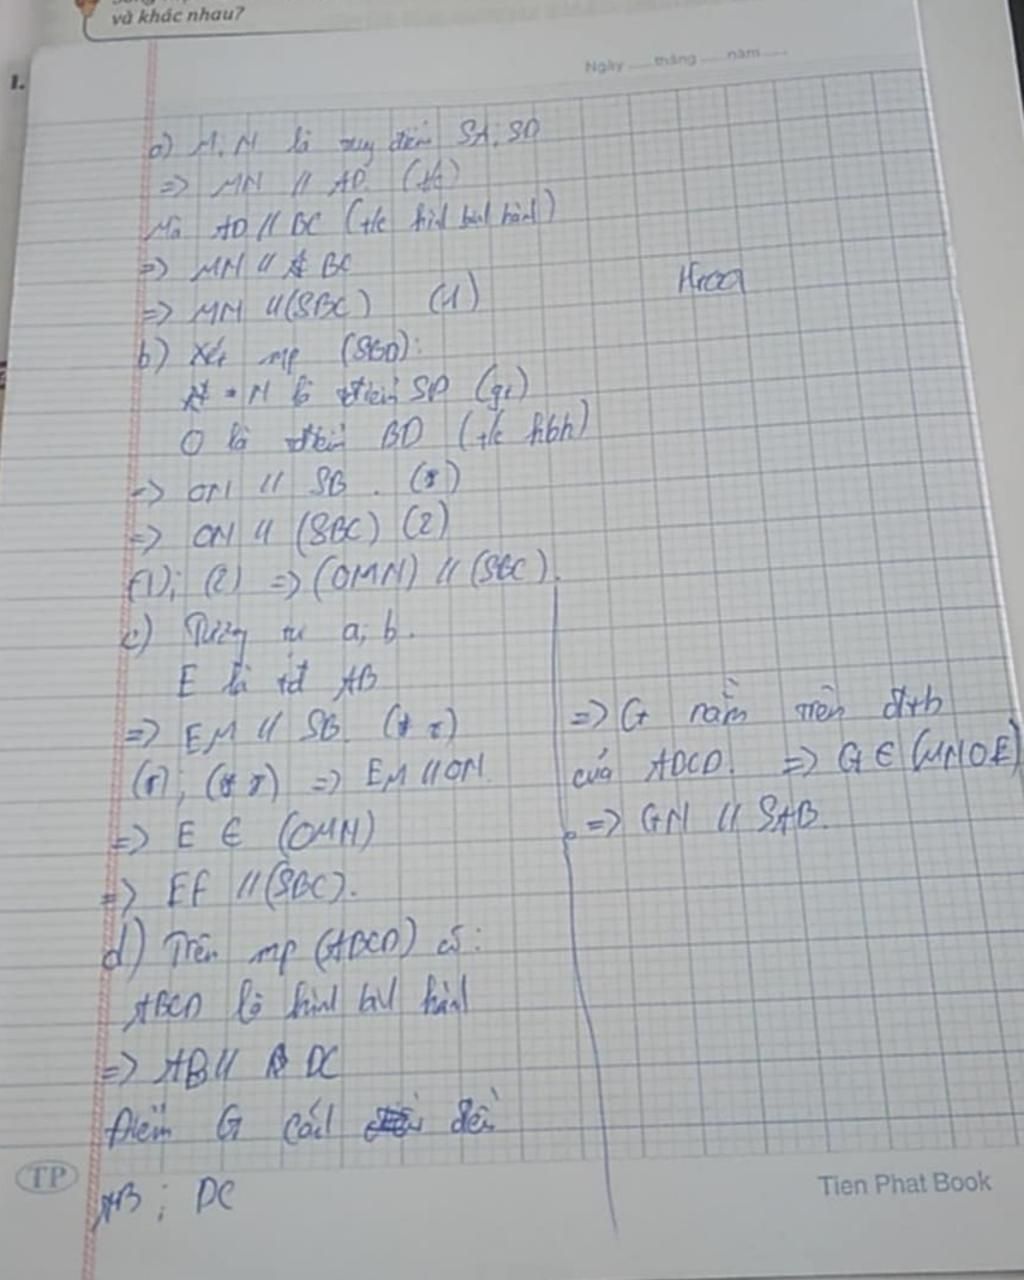 và khác nhau?
1.
Ngày ..... tháng ..... năm .....
a) M, N là trung điểm SA, SD
=> MN // AD (t/c)
Mà AD // BC (t/c hình bình hành)
=> MN // BC
=> MN // (SBC) (1)
b) Xét mp (SBD):
N là tđiểm SD (gt)
O là tđiểm BD (t/c hbh)
=> ON // SB. (*)
=> ON // (SBC) (2)
(1); (2) => (OMN) // (SBC).
c) Tương tự a; b.
E là tđ AB
=> EM // SB. (* *)
(*); (* *) => EM // ON
=> E ∈ (OMN)
=> EF // (SBC).
d) Trên mp (ABCD) có:
ABCD là hình bình hành
=> AB // DC
Điểm G cách đều
AB ; DC
=> G nằm trên đtb
của ABCD. => G ∈ (MNOE)
=> GN // SAB.
TP
Tien Phat Book